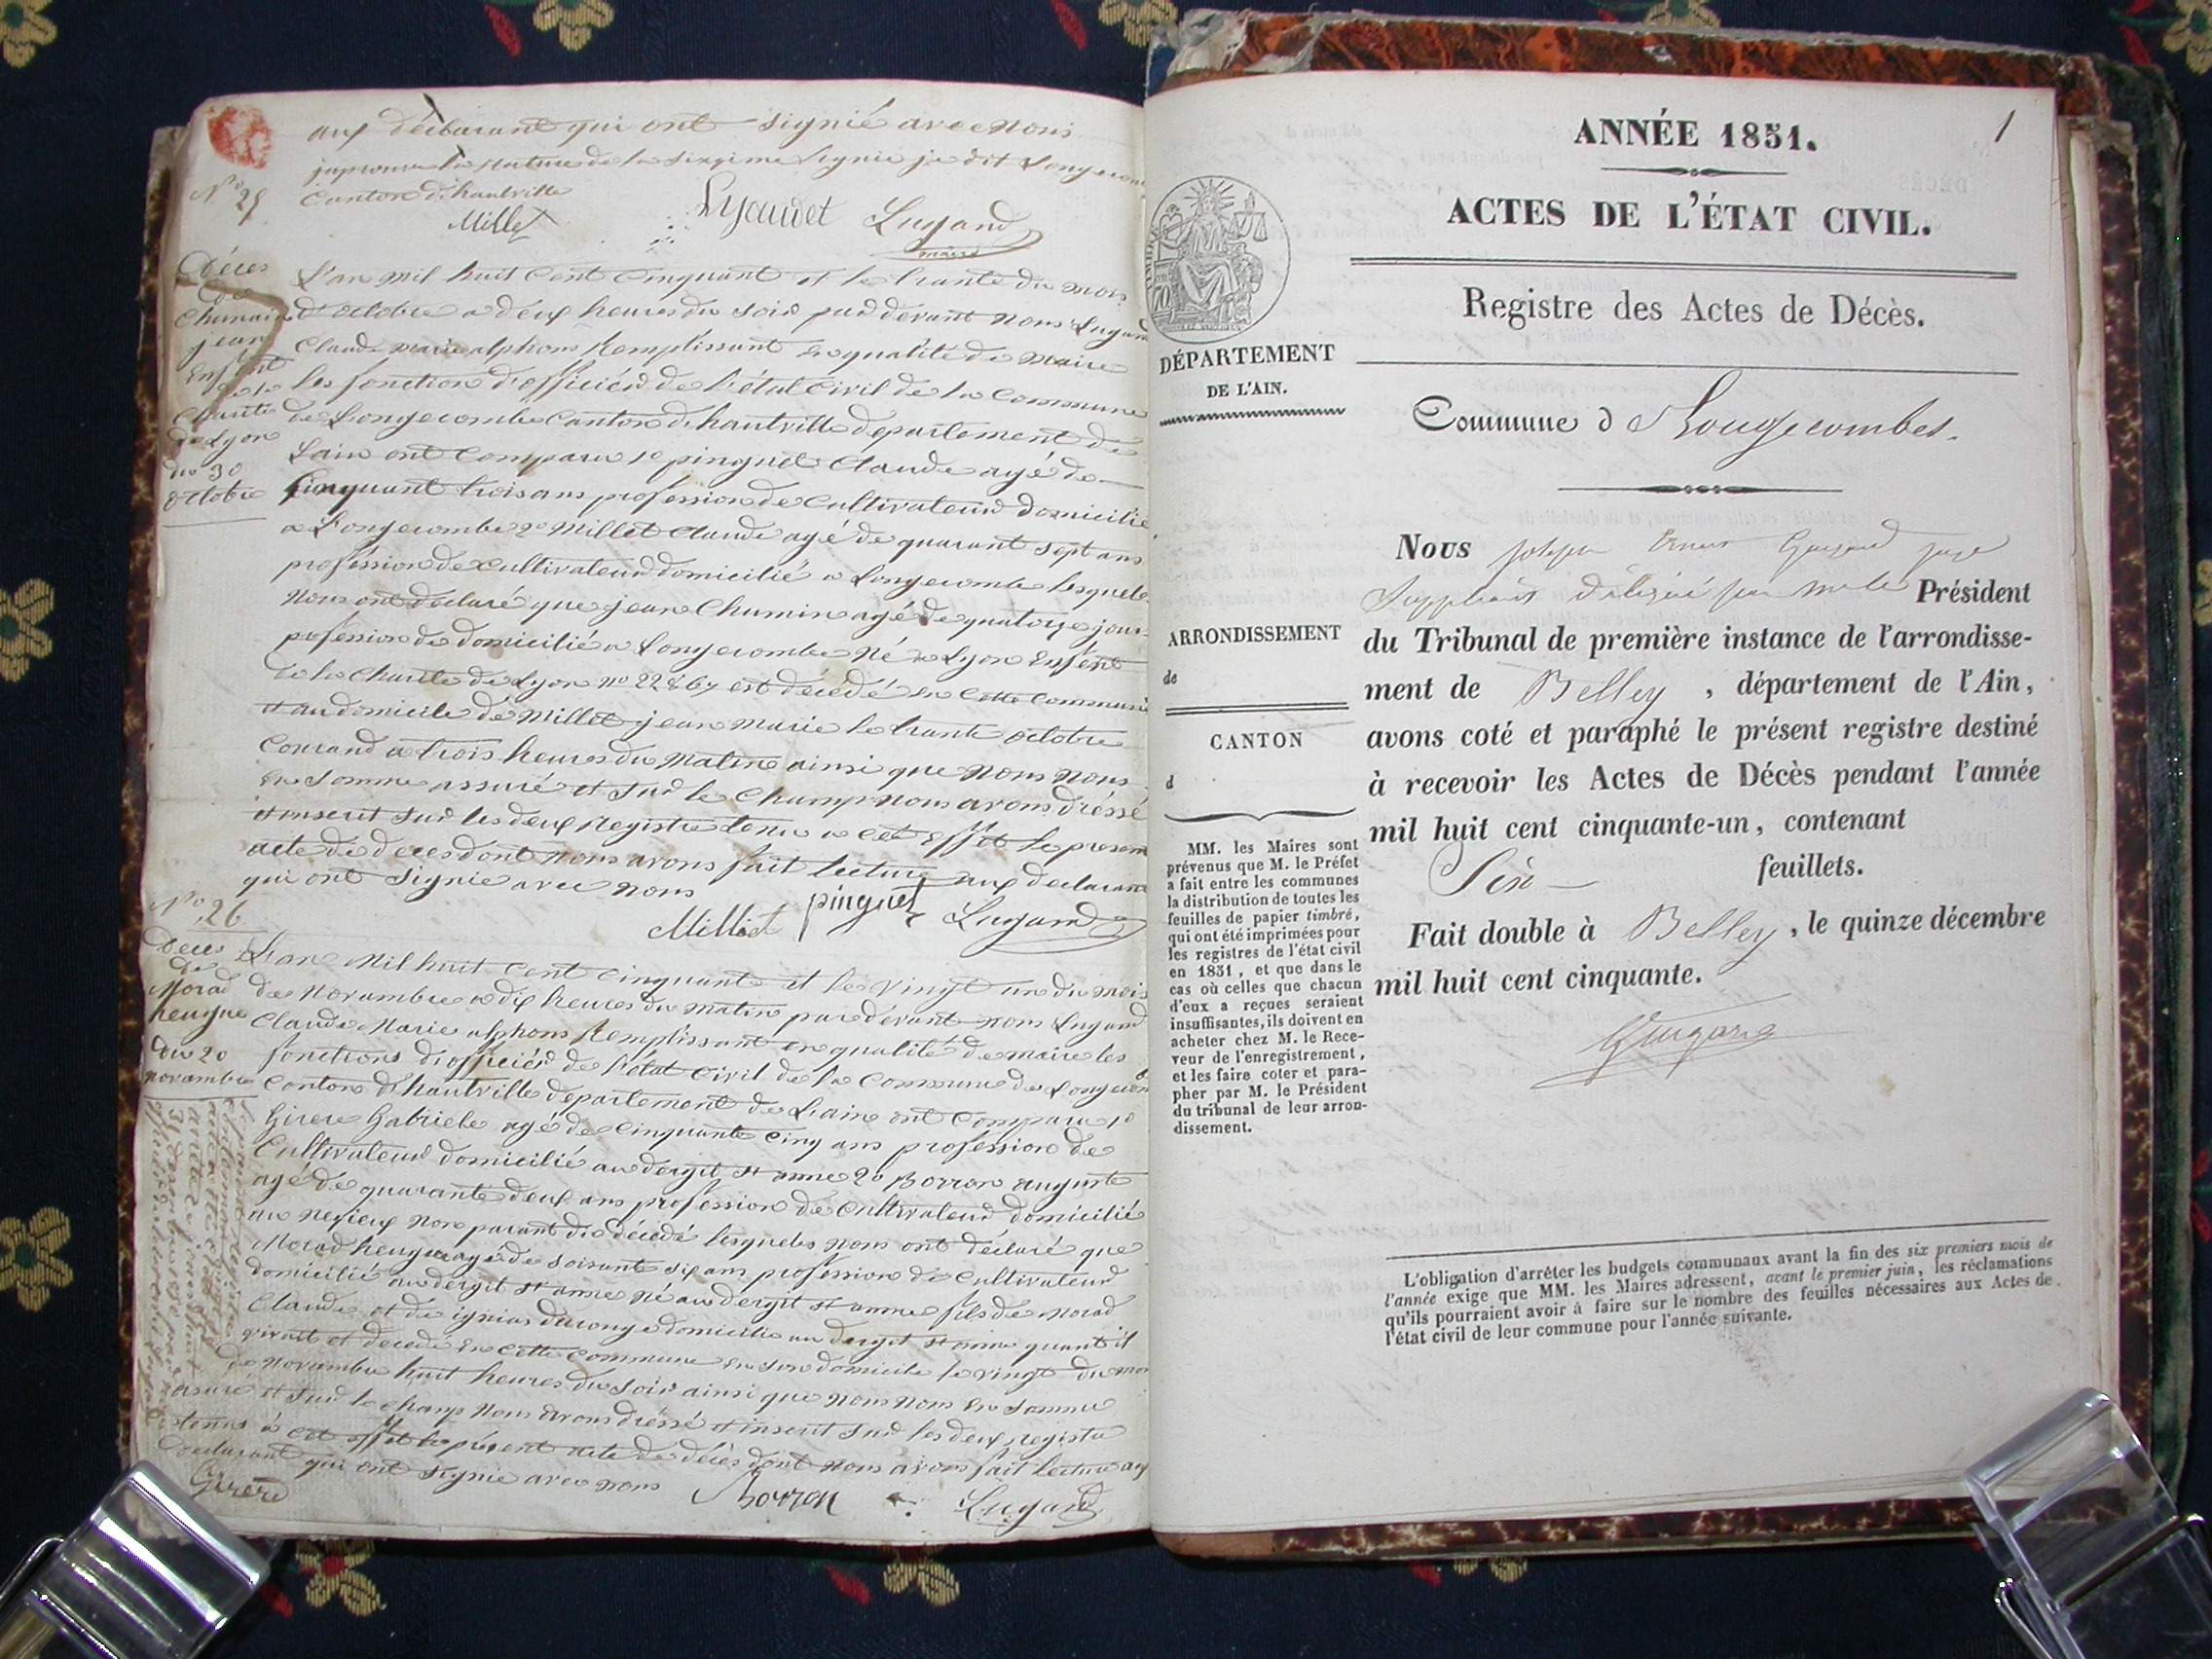 aux déclarant qui ont signié avec nous
japrouve la rature de la sixzime Lignie je dit Longecom
Canton d'hautville
Millet Lyaudet Lugand
maire
N° 25
Décès
de
Chumain
jean
Enfent
de la
Charité
de Lyon
du 30
octobre
L'an mil huit cent cinquant et le trante du mois
d'octobre a deux heures du soir par devant nous Lugand
Claude marie alphons Remplissant en qualité de maire
les fonction d'officier de l'état Civil de la Commune
de Longecombe Canton d'hautville département de
Lain ont Comparu 1° pinguet Claude agé de
Cinquant trois ans profession de Cultivateur domicilié
a Longecombe 2° Millet Claude agé de quarant sept ans
profession de Cultivateur domicilié a Longecombe lesquels
Nous ont déclaré que jean Chumin agé de quatorze jour
pofession de domicilié a Longecombe Né a Lyon Enfent
de la Charite de Lyon no est décédé en Cette Commune
et au domicile de Millet jean marie le trante octobre
Courand a trois heures du Matin ainsi que nous nous
en somme assuré et sur le Champ nous avons dréssé
et inscrit sur les deux Registre tenu a cet Effet le presen
acte de deces dont nous avons fait lecture aux declarant
qui ont signie avec nous
Millet pinguet Lugand
N° 26
Déces
de
Morad
heugne
du 20
novambre
L'an Mil huit cent cinquante et le vingt un du mois
de Novambre a dix heures du matin par devant nous Lugand
Claude Marie alphons Remplissant en qualité de maire les
fonctions d'officier de l'état Civil de la Commune de Longecom
Canton d'hautville département de Lain ont Comparu 1°
Girere Gabriele agé de Cinquante cinq ans profession de
Cultivateur domicilié au dergit st anne 2° Borron auguste
agé de quarante deux ans profession de Cultivateur domicilié
au Negieux Non parant du décédé lesquels nous ont déclaré que
Morad heugne agé de soisante six ans profession de Cultivateur
domicilié au dergit st anne né au dergit st anne fils de Morad
Claude et de domicilie au dergit st anne quant il
vivait et decede En Cette Commune En son domicile le vingt du moi
de Novambre huit heures du soir ainsi que nous nous En somme
asuré et sur le champ nous avons dréssé et inscrit sur les deux registre
tenus à cet effet le présent acte de décès dont nous avons fait lecture aux
déclarant qui ont signie avec nous
Girere Borron Lugand
1
ANNÉE 1851.
ACTES DE L'ÉTAT CIVIL.
Registre des Actes de Décès.
DÉPARTEMENT
DE L'AIN.
Commune d Longecombes.
ARRONDISSEMENT
de
CANTON
d
MM. les Maires sont
prévenus que M. le Préfet
a fait entre les communes
la distribution de toutes les
feuilles de papier timbré,
qui ont été imprimées pour
les registres de l'état civil
en 1851, et que dans le
cas où celles que chacun
d'eux a reçues seraient
insuffisantes, ils doivent en
acheter chez M. le Rece-
veur de l'enregistrement,
et les faire coter et para-
pher par M. le Président
du tribunal de leur arron-
dissement.
Nous joseph juge
Suppléant délégué par Mr le Président
du Tribunal de première instance de l'arrondisse-
ment de Belley, département de l'Ain,
avons coté et paraphé le présent registre destiné
à recevoir les Actes de Décès pendant l'année
mil huit cent cinquante-un, contenant
Six feuillets.
Fait double à Belley, le quinze décembre
mil huit cent cinquante.
L'obligation d'arrêter les budgets communaux avant la fin des six premiers mois de
l'année exige que MM. les Maires adressent, avant le premier juin, les réclamations
qu'ils pourraient avoir à faire sur le nombre des feuilles nécessaires aux Actes de
l'état civil de leur commune pour l'année suivante.